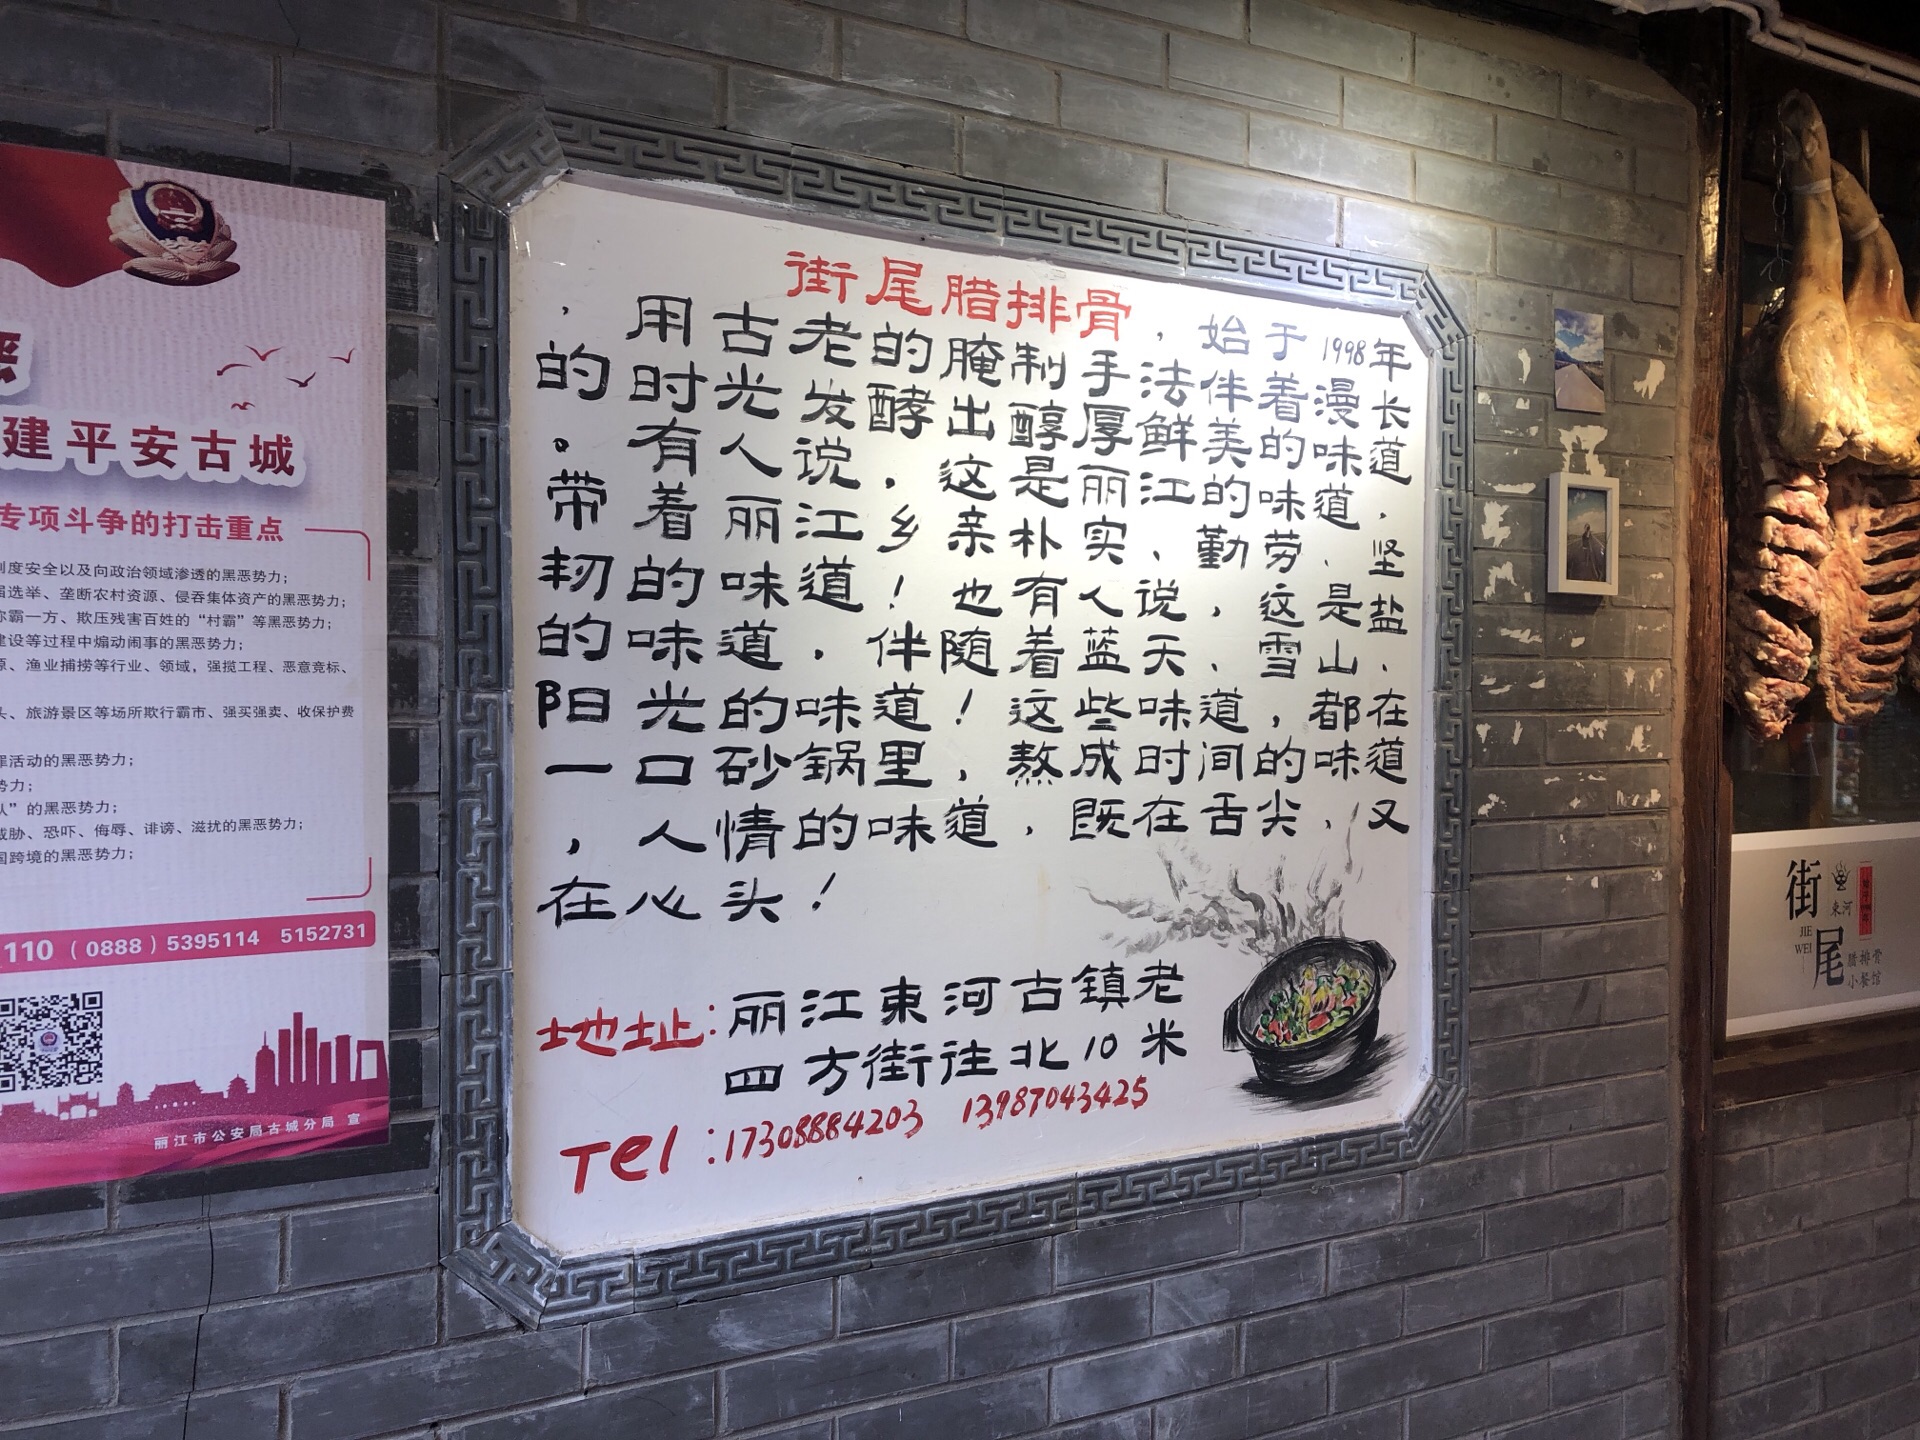 街尾腊排骨，始于1998年
，用古老的腌制手法伴着漫长
的时光发酵出醇厚鲜美的味道
。有人说，这是丽江的味道，
带着丽江乡亲朴实、勤劳、坚
韧的味道！也有人说，这是盐
的味道，伴随着蓝天、雪山、
阳光的味道！这些味道，都在
一口砂锅里，熬成时间的味道
，人情的味道，既在舌尖，又
在心头！
地址：丽江束河古镇老
四方街往北10米
Tel：17308884203 13987043425
建平安古城
专项斗争的打击重点
制度安全以及向政治领域渗透的黑恶势力；
选举、垄断农村资源、侵吞集体资产的黑恶势力；
称霸一方、欺压残害百姓的“村霸”等黑恶势力；
建设等过程中煽动闹事的黑恶势力；
、渔业捕捞等行业、领域，强揽工程、恶意竞标、
头、旅游景区等场所欺行霸市、强买强卖、收保护费
罪活动的黑恶势力；
势力；
队”的黑恶势力；
威胁、恐吓、侮辱、诽谤、滋扰的黑恶势力；
国跨境的黑恶势力；
110（0888）5395114 5152731
丽江市公安局古城分局 宣
街尾
JIE
WEI
束河
腊排骨
小餐馆